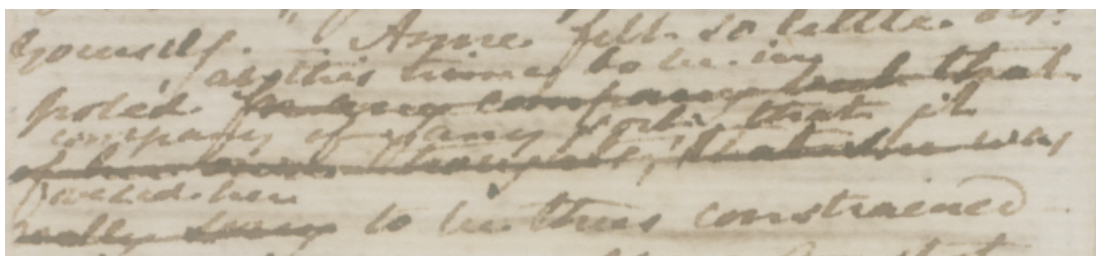 yourself. — Anne felt so little dis:
at this time, to be in
posed for any company but that
company of any sort, that it
of her own thoughts, that she was
vexed her
really sorry to be thus constrained